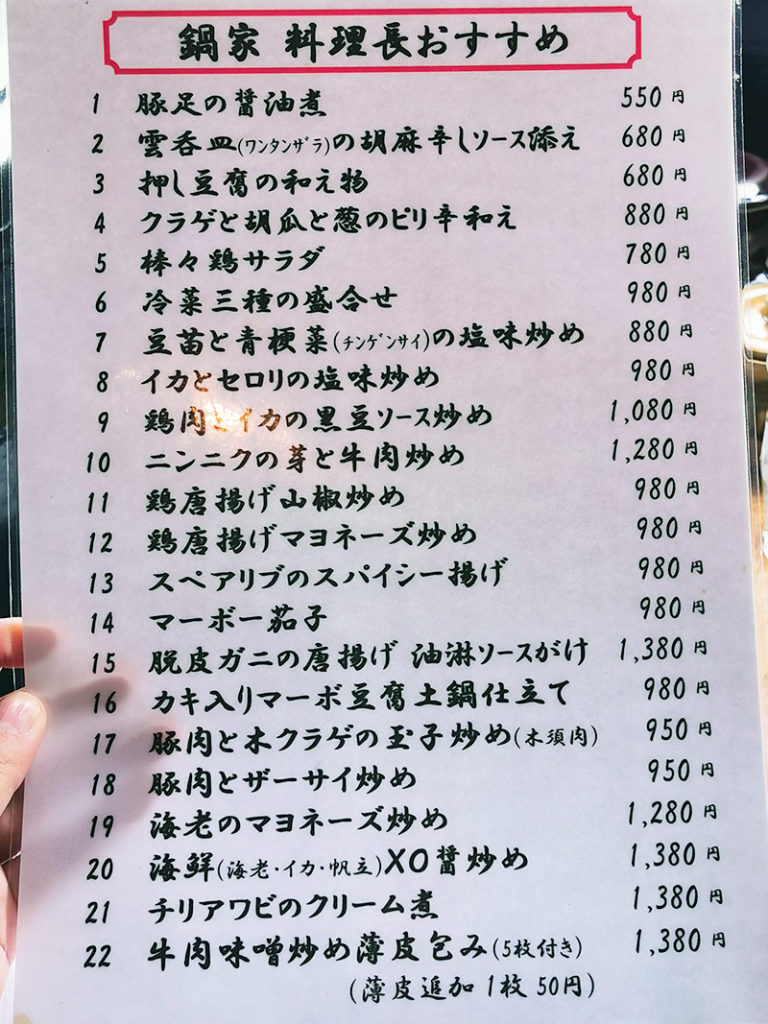 鍋家 料理長おすすめ
1 豚足の醤油煮 550円
2 雲呑皿(ワンタンザラ)の胡麻辛しソース添え 680円
3 押し豆腐の和え物 680円
4 クラゲと胡瓜と葱のピリ辛和え 880円
5 棒々鶏サラダ 780円
6 冷菜三種の盛合せ 980円
7 豆苗と青梗菜(チンゲンサイ)の塩味炒め 880円
8 イカとセロリの塩味炒め 980円
9 鶏肉とイカの黒豆ソース炒め 1,080円
10 ニンニクの芽と牛肉炒め 1,280円
11 鶏唐揚げ山椒炒め 980円
12 鶏唐揚げマヨネーズ炒め 980円
13 スペアリブのスパイシー揚げ 980円
14 マーボー茄子 980円
15 脱皮ガニの唐揚げ 油淋ソースがけ 1,380円
16 カキ入りマーボ豆腐土鍋仕立て 980円
17 豚肉と木クラゲの玉子炒め(木須肉) 950円
18 豚肉とザーサイ炒め 950円
19 海老のマヨネーズ炒め 1,280円
20 海鮮(海老・イカ・帆立)XO醤炒め 1,380円
21 チリアワビのクリーム煮 1,380円
22 牛肉味噌炒め薄皮包み(5枚付き) 1,380円
(薄皮追加 1枚 50円)